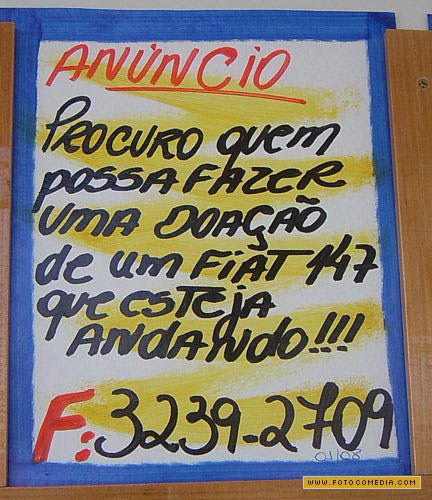 ANÚNCIO
PROCURO quem
possa FAZER
uma DOAÇÃO
de um FIAT 147
que esteja
ANDANDO!!!
F: 3239-2709
01/08
www.fotocomedia.com